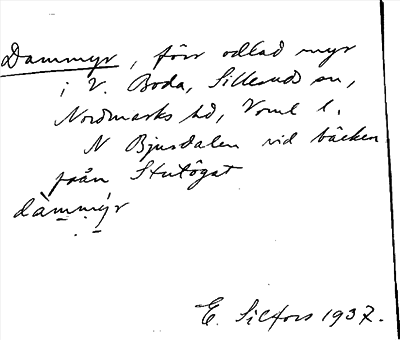 Dammyr, förr odlad myr
i V. Boda, Sillerud sn,
Nordmarks hd, Vrml l.
N Bjusdalen vid bäcken
från Stutögat
dàmmýr
E. Silfors 1937.